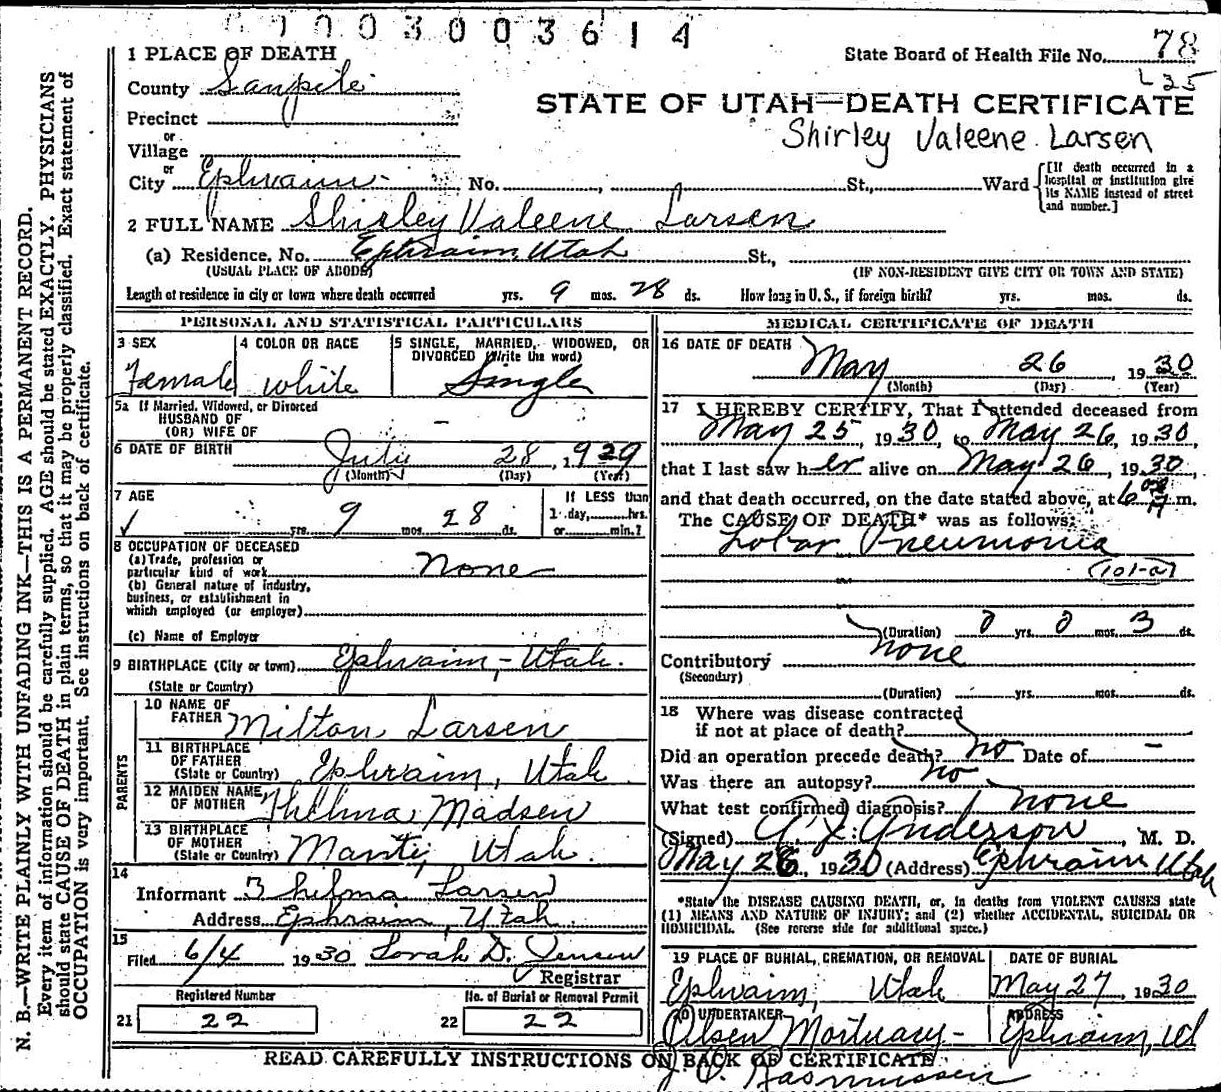 0003003614
1 PLACE OF DEATH
State Board of Health File No. 78
L 35
County Sanpete
STATE OF UTAH—DEATH CERTIFICATE
Precinct
Shirley Valeene Larsen
or
Village
or
City Ephraim No. , St., Ward
[If death occurred in a hospital or institution give its NAME instead of street and number.]
2 FULL NAME Shirley Valeene Larsen
(a) Residence, No. Ephraim, Utah St.,
(USUAL PLACE OF ABODE) (IF NON-RESIDENT GIVE CITY OR TOWN AND STATE)
Length of residence in city or town where death occurred yrs. 9 mos. 28 ds. How long in U. S., if foreign birth? yrs. mos. ds.
PERSONAL AND STATISTICAL PARTICULARS
3 SEX 4 COLOR OR RACE 5 SINGLE, MARRIED, WIDOWED, OR
DIVORCED (Write the word)
Female white Single
5a If Married, Widowed, or Divorced
HUSBAND OF
(OR) WIFE OF –
6 DATE OF BIRTH July 28, 1929
(Month) (Day) (Year)
7 AGE If LESS than
yrs. 9 mos. 28 ds. 1 day, hrs.
or min.?
8 OCCUPATION OF DECEASED
(a) Trade, profession or
particular kind of work None
(b) General nature of industry,
business, or establishment in
which employed (or employer)
(c) Name of Employer
9 BIRTHPLACE (City or town) Ephraim, - Utah.
(State or Country)
PARENTS
10 NAME OF
FATHER Milton Larsen
11 BIRTHPLACE
OF FATHER
(State or Country) Ephraim, Utah
12 MAIDEN NAME
OF MOTHER Thelma Madsen
13 BIRTHPLACE
OF MOTHER
(State or Country) Manti, Utah.
14
Informant Thelma Larsen
Address Ephraim, Utah.
15
Filed 6/4 1930 D. Jensen
Registrar
Registered Number No. of Burial or Removal Permit
21 22 22 22
MEDICAL CERTIFICATE OF DEATH
16 DATE OF DEATH
May 26, 1930
(Month) (Day) (Year)
17 I HEREBY CERTIFY, That I attended deceased from
May 25, 1930, to May 26, 1930,
that I last saw her alive on May 26, 1930,
and that death occurred, on the date stated above, at 6 m.
The CAUSE OF DEATH* was as follows:
Lobar Pneumonia
(101-a)
(Duration) 0 yrs. 0 mos. 3 ds.
Contributory none
(Secondary)
(Duration) yrs. mos. ds.
18 Where was disease contracted
if not at place of death?
Did an operation precede death? no Date of –
Was there an autopsy? no
What test confirmed diagnosis? none
(Signed) A. J. Anderson, M. D.
May 26, 1930 (Address) Ephraim Utah
*State the DISEASE CAUSING DEATH, or, in deaths from VIOLENT CAUSES state
(1) MEANS AND NATURE OF INJURY; and (2) whether ACCIDENTAL, SUICIDAL OR
HOMICIDAL. (See reverse side for additional space.)
19 PLACE OF BURIAL, CREMATION, OR REMOVAL DATE OF BURIAL
Ephraim, Utah May 27, 1930
20 UNDERTAKER ADDRESS
Olsen Mortuary - Ephraim, Ut
READ CAREFULLY INSTRUCTIONS ON BACK OF CERTIFICATE
Rasmussen
N. B.—WRITE PLAINLY WITH UNFADING INK—THIS IS A PERMANENT RECORD.
Every item of information should be carefully supplied. AGE should be stated EXACTLY. PHYSICIANS
should state CAUSE OF DEATH in plain terms, so that it may be properly classified. Exact statement of
OCCUPATION is very important. See instructions on back of certificate.